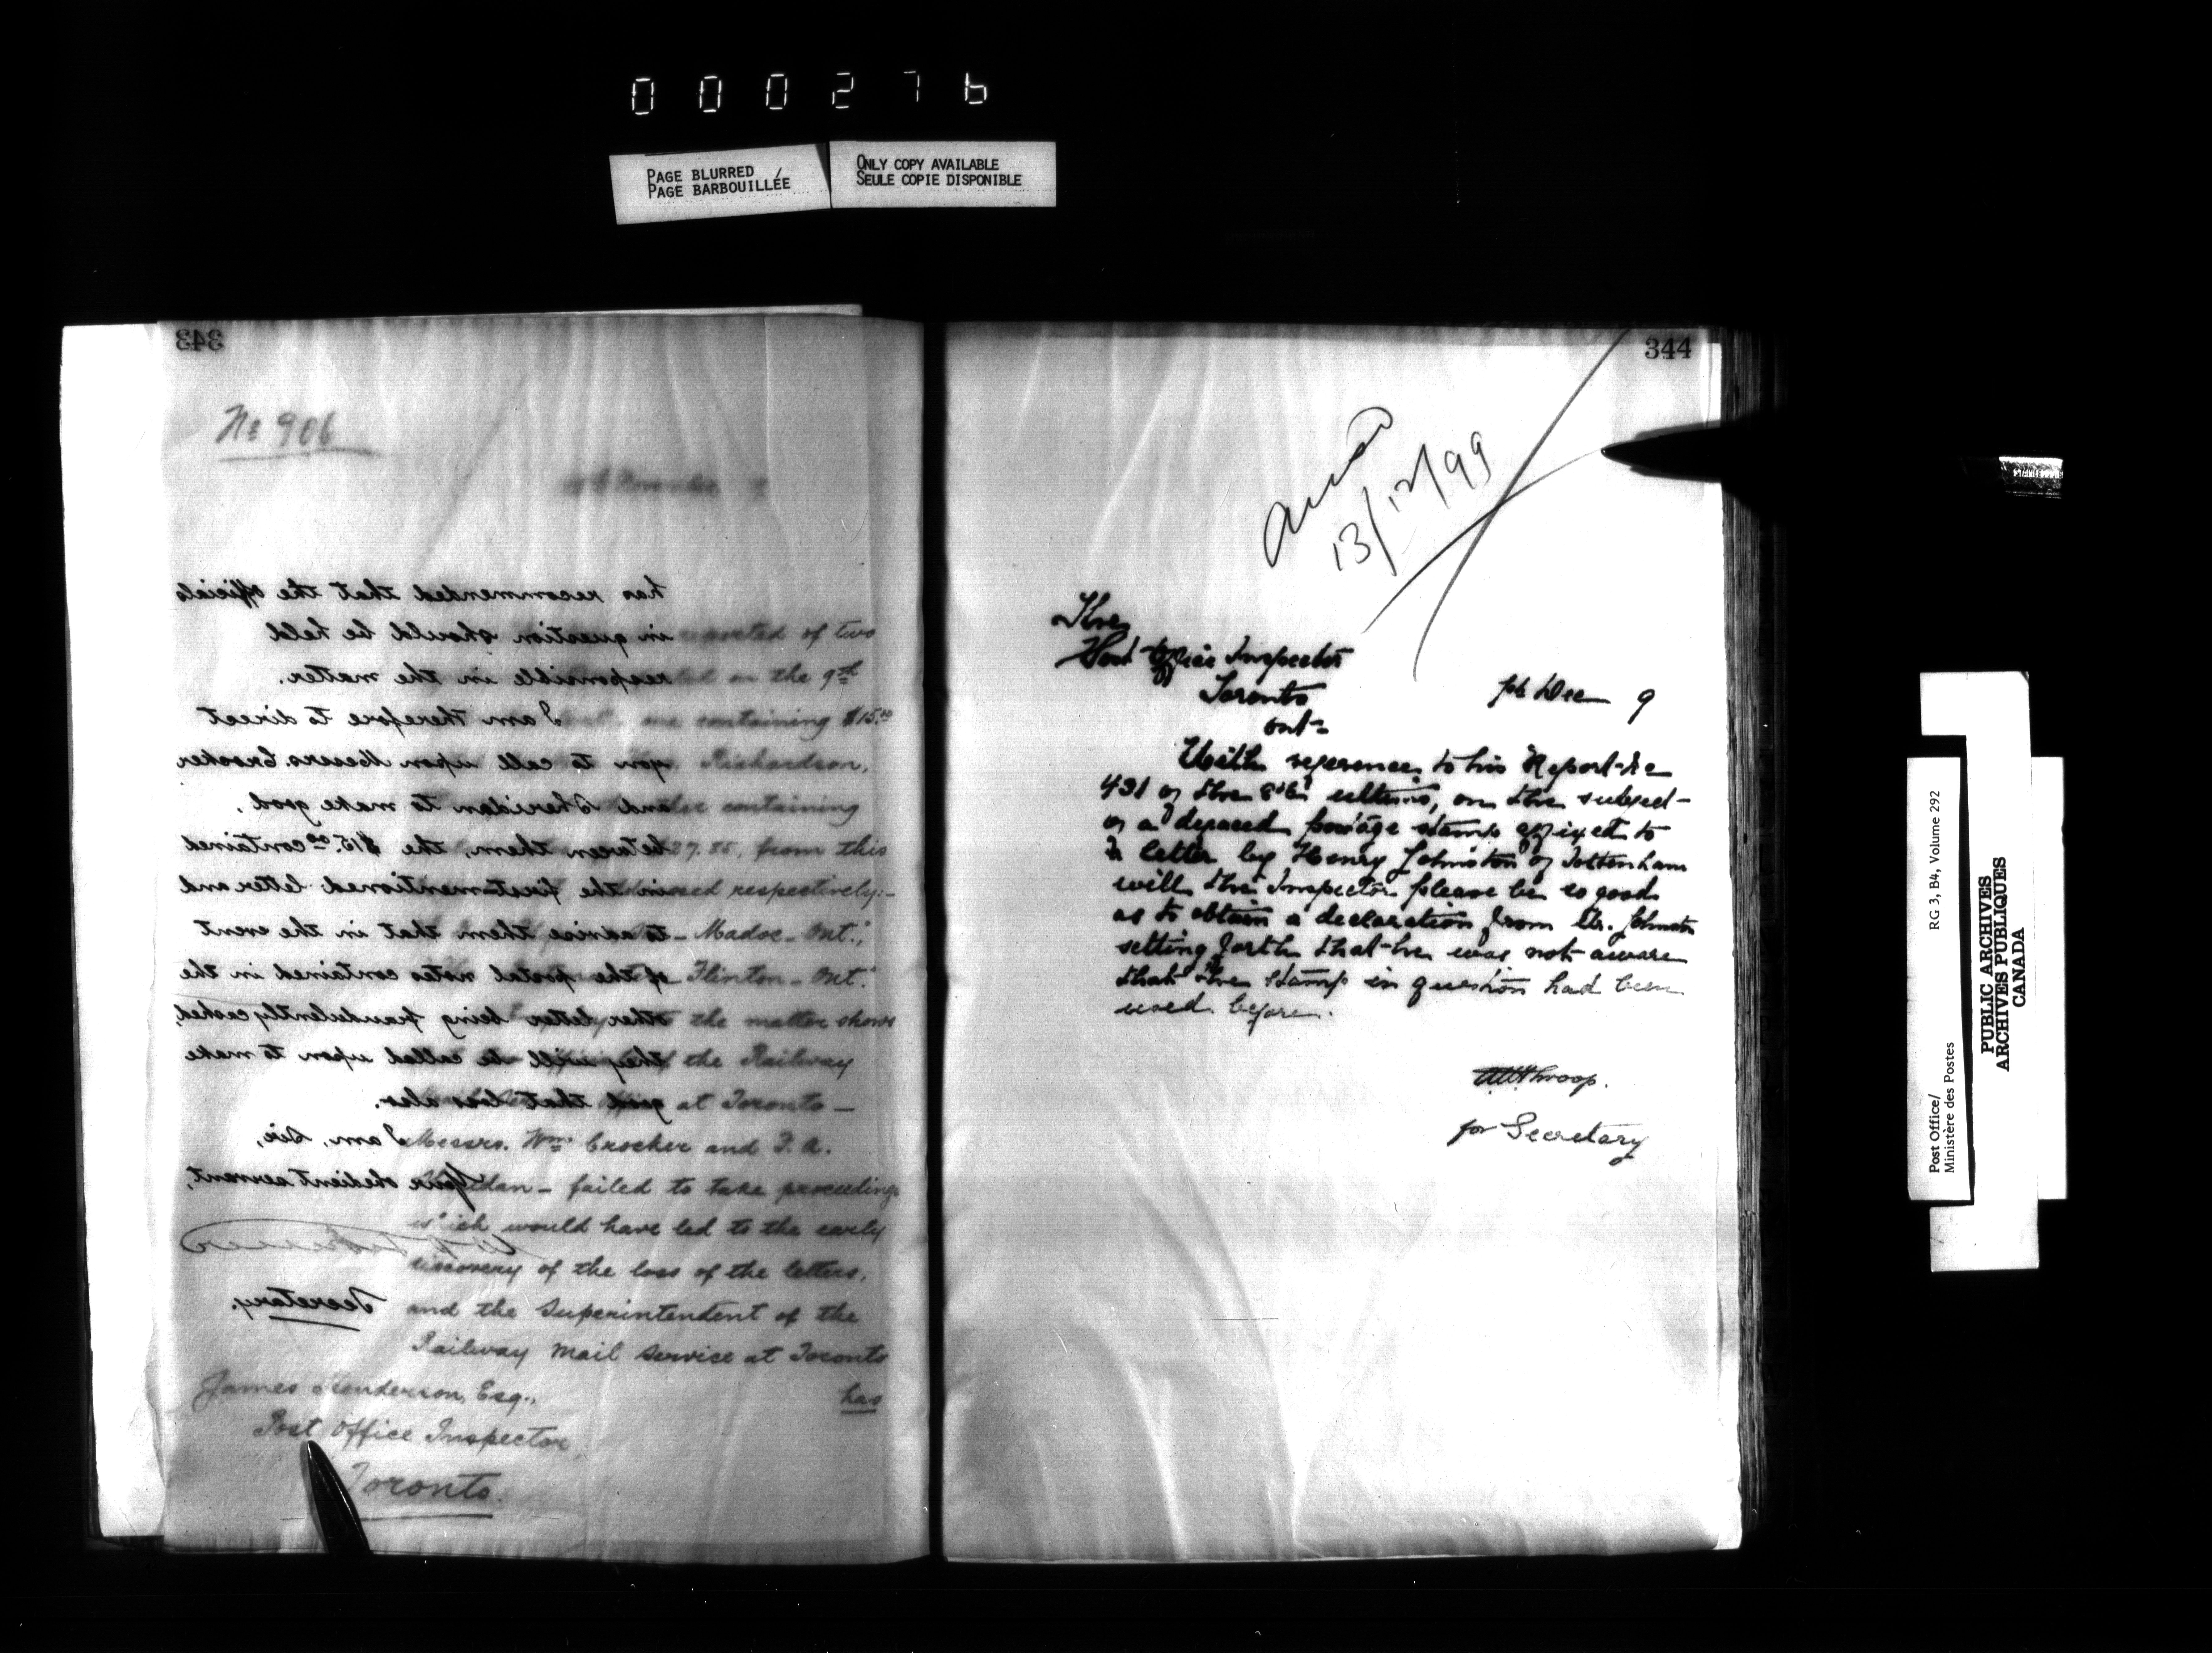 000276
PAGE BLURRED
PAGE BARBOUILLÉE
ONLY COPY AVAILABLE
SEULE COPIE DISPONIBLE
343
No 906
November
has recommended that the officials
in question should be held
responsible in the matter.
I am therefore to direct
you to call upon Messrs. Crocker
and Sheridan to make good,
between them, the $15.00 contained
in the first-mentioned letter and
to advise them that in the event
of the postal notes contained in the
other letter being fraudulently cashed,
they will be called upon to make
good that loss also.
I am, Sir,
Your obedient servant,
Secretary.
reported of two
on the 9th
one containing $15.00
Richardson,
containing
27.85, from this
respectively:-
Madoc - Ont.,
Flinton - Ont.
the matter shows
the Railway
at Toronto -
Messrs. Wm. Crocker and F. A.
Sheridan - failed to take proceedings
which would have led to the early
discovery of the loss of the letters,
and the Superintendent of the
Railway Mail Service at Toronto
has
James Henderson, Esq.,
Post Office Inspector,
Toronto.
344
13/12/99
The
Post Office Inspector
Toronto
Ont
Dec 9
With reference to his Report No
431 of the 8th ultimo, on the subject
of a defaced postage stamp affixed to
a letter by Henry Johnston of Tottenham
will the Inspector please be so good
as to obtain a declaration from Mr. Johnston
setting forth that he was not aware
that the stamp in question had been
used before.
Throop.
for Secretary
Post Office/
Ministère des Postes
RG 3, B4, Volume 292
PUBLIC ARCHIVES
ARCHIVES PUBLIQUES
CANADA